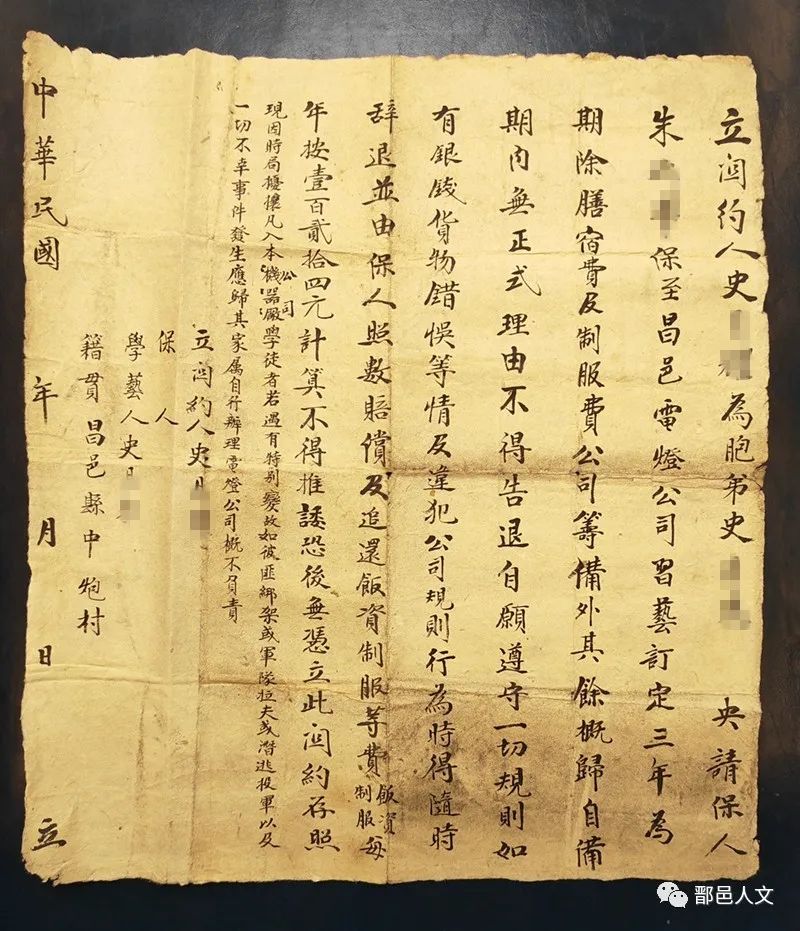 立関約人史 為胞弟史 央請保人
朱 保至昌邑電燈公司習藝訂定三年為
期除膳宿費及制服費公司籌備外其餘概歸自備
期內無正式理由不得告退自願遵守一切規則如
有銀錢貨物錯悞等情及違犯公司規則行為時得隨時
辞退並由保人照數賠償及追還飯資制服等費飯資制服每
年按壹百貳拾四元計算不得推諉恐後無憑立此関約存照
現因時局擾攘凡入本公司機器廠學徒者若遇有特别變故如彼匪綁架或軍隊拉夫或潛逃投軍以及
一切不幸事件發生應歸其家属自行辦理電燈公司概不負責
立関約人史
保人
學藝人史
籍貫昌邑縣中炮村
中華民國 年 月 日 立
鄑邑人文